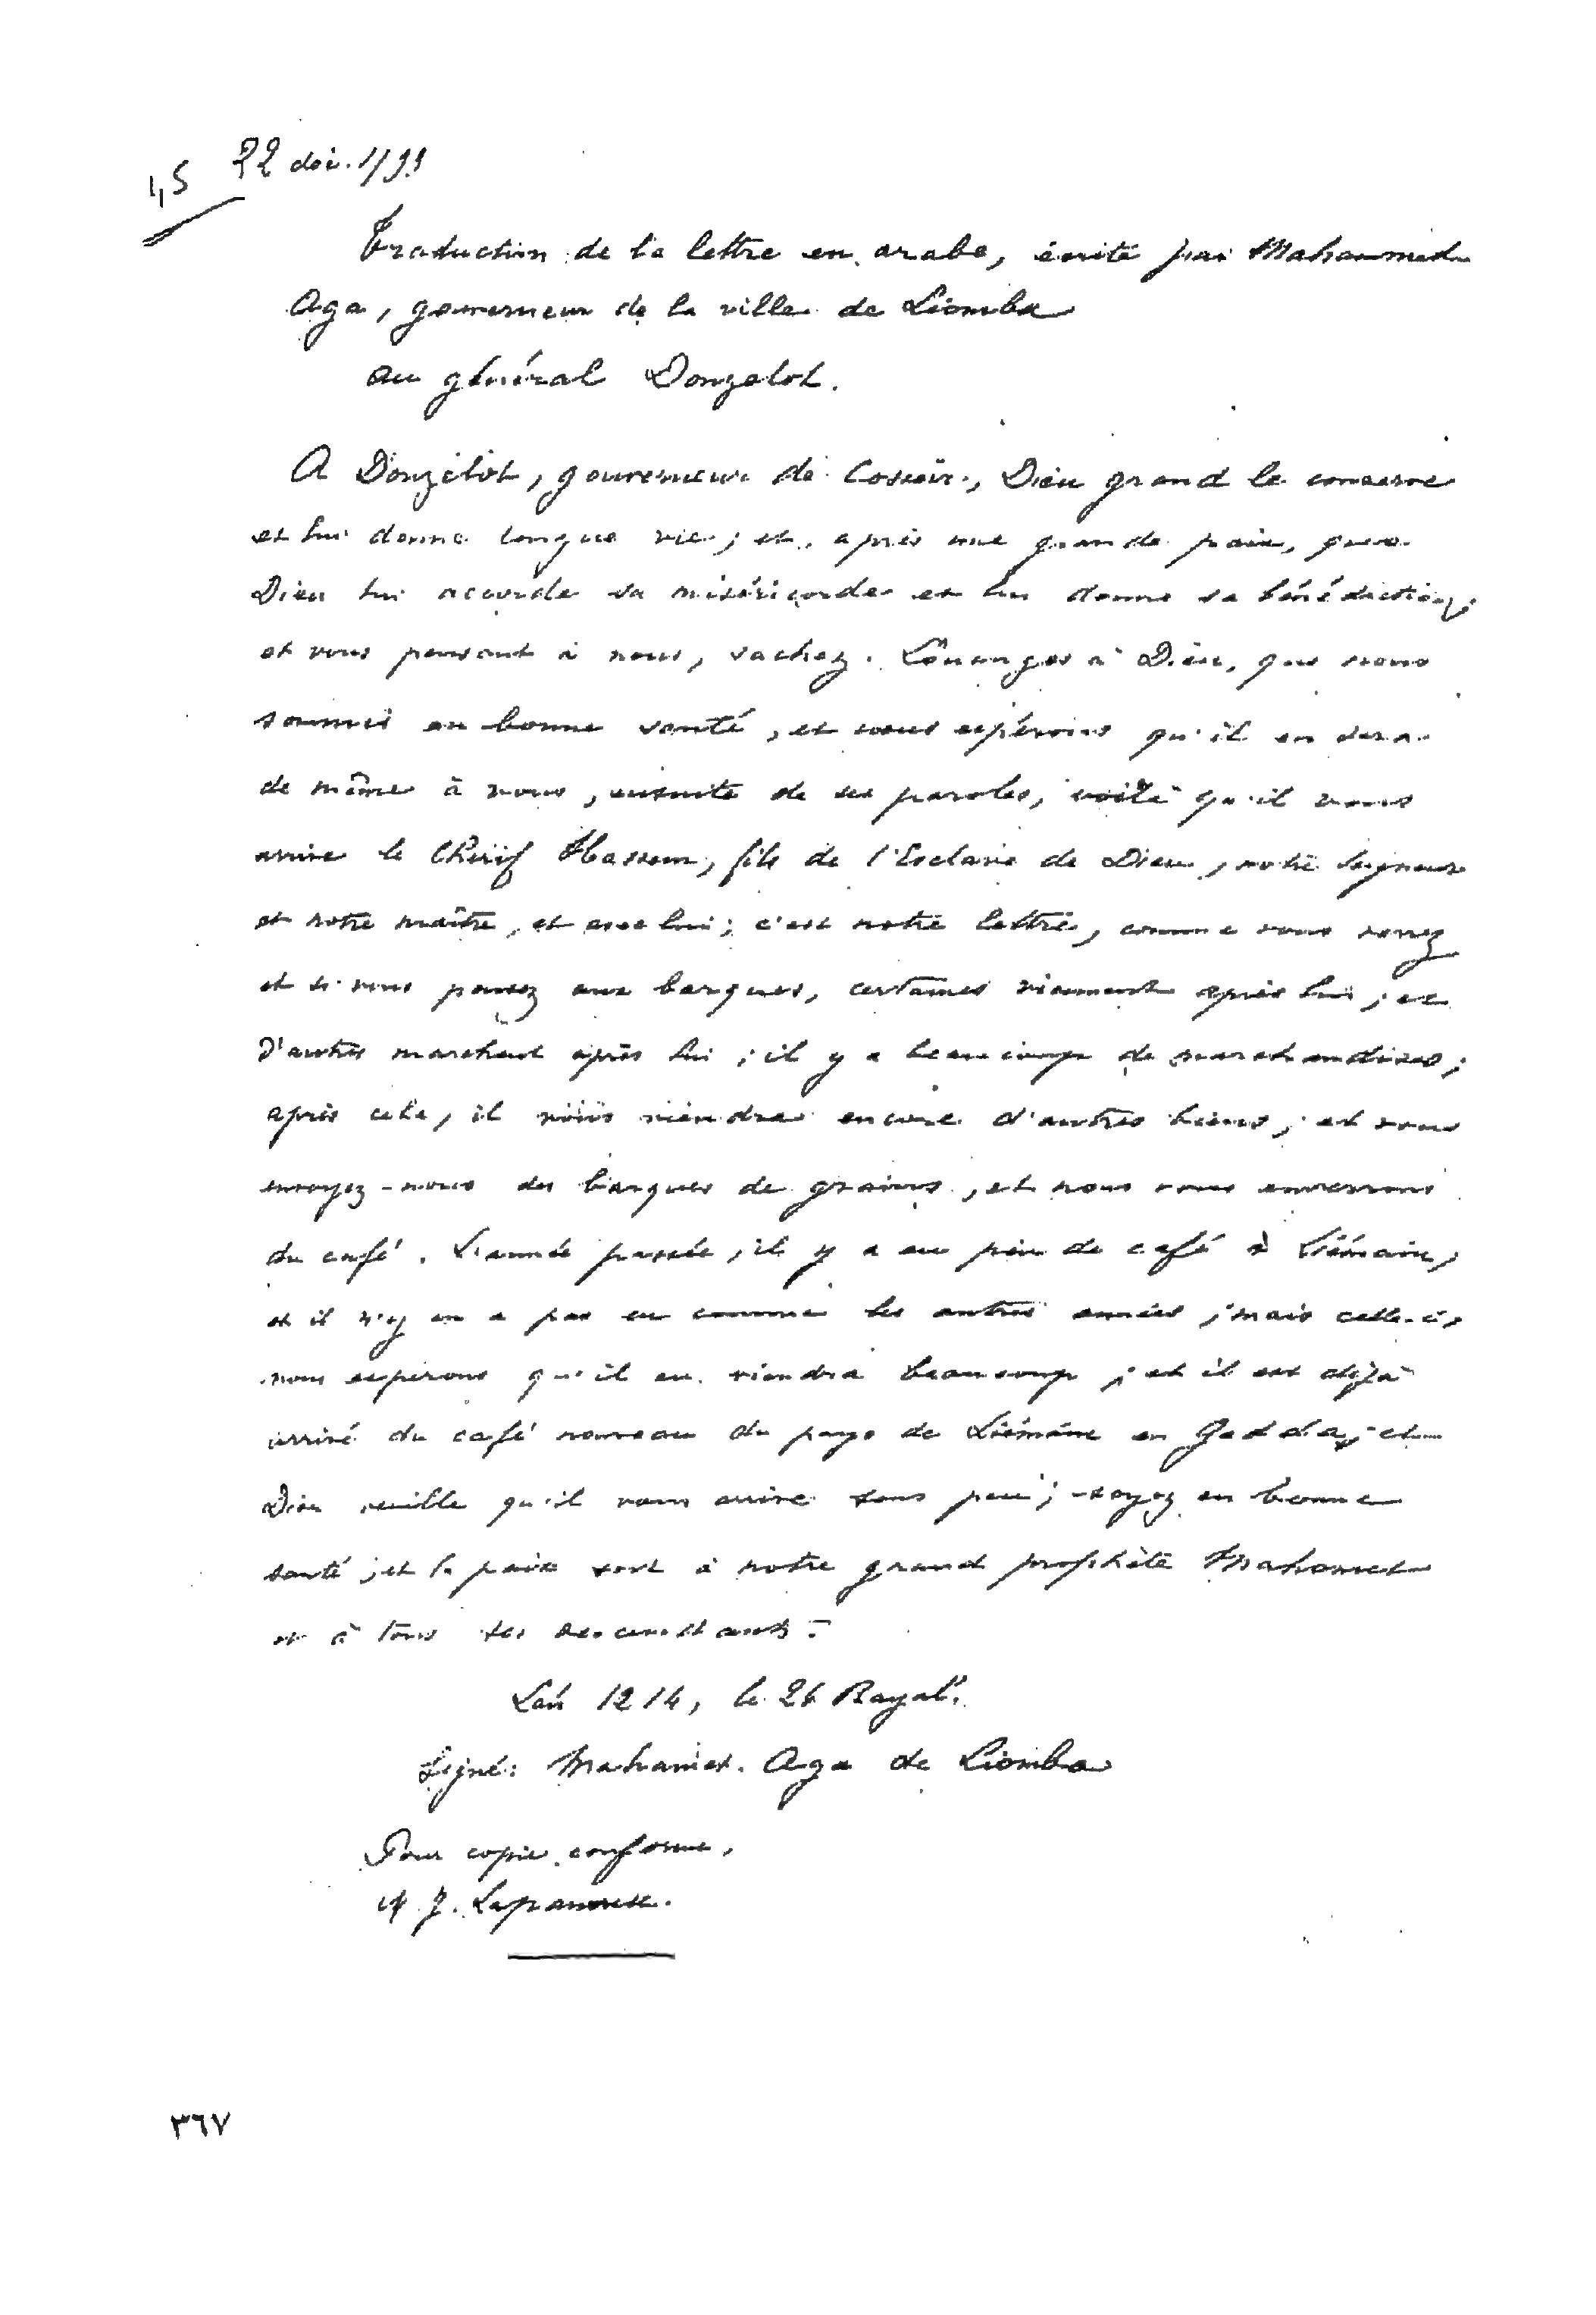 22 déc. 1799
Traduction de la lettre en arabe, écrite par Mahammed
Aga, gouverneur de la ville de Liomba
au général Donzelot.
A Donzelot, gouverneur de Cosseïr, Dieu grand le conserve
et lui donne longue vie; et, après une grande paix, que
Dieu lui accorde sa miséricorde et lui donne sa bénédiction;
et vous pensant à nous, sachez. Louanges à Dieu, que nous
sommes en bonne santé, et nous espérons qu'il en sera
de même à vous, ensuite de ses paroles, voilà qu'il vous
arrive le Chérif Hassan, fils de l'Esclave de Dieu, notre Seigneur
et notre maître, et avec lui; c'est notre lettre, comme vous verrez
et si vous pensez aux barques, certaines viennent après lui; et
d'autres marchent après lui; il y a beaucoup de marchandises;
après cela, il vous viendra encore d'autres biens; et vous
envoyez-nous des barques de grains, et nous vous enverrons
du café. L'année passée, il y a eu peu de café à Liémain,
et il n'y en a pas eu comme les autres années; mais celle-ci,
nous espérons qu'il en viendra beaucoup; et il est déjà
arrivé du café nouveau du pays de Liémâne en Gedda; et
Dieu veuille qu'il vous arrive sous peu; soyez en bonne
santé; et la paix soit à notre grand prophète Mahomet
et à tous ses descendants.
L'an 1214, le 24 Rayab.
Signé: Mahamet. Aga de Liomba
Pour copie conforme,
٣٦٧